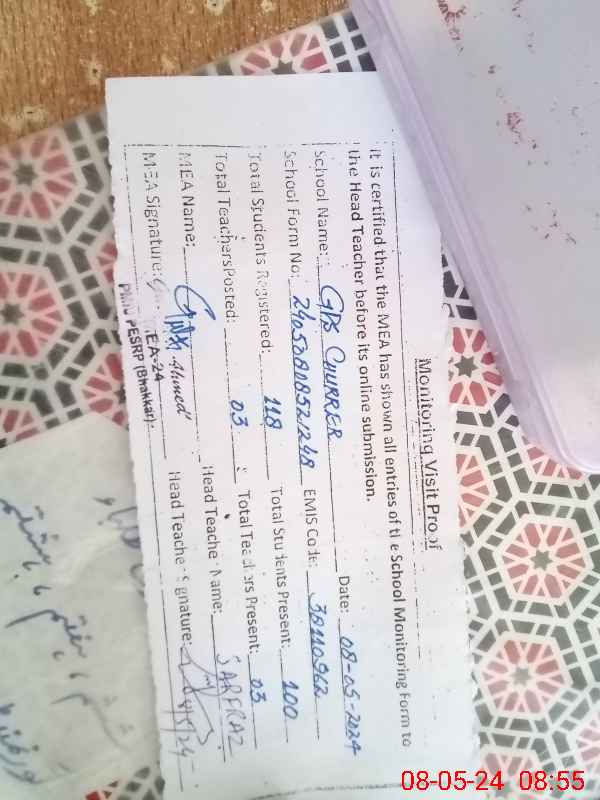 Monitoring Visit Proof
It is certified that the MEA has shown all entries of the School Monitoring Form to
the Head Teacher before its online submission.
School Name: GPS CHURRER Date: 08-05-2024
School Form No: EMIS Code: 38110962
Total Students Registered: 118 Total Students Present: 100
Total Teachers Posted: 03 Total Teachers Present: 03
MEA Name: Ahmed Head Teacher Name: SARFRAZ
MEA Signature: Head Teacher Signature:
MEA-24
PMIU PESRP (Bhakkar)
08-05-24 08:55